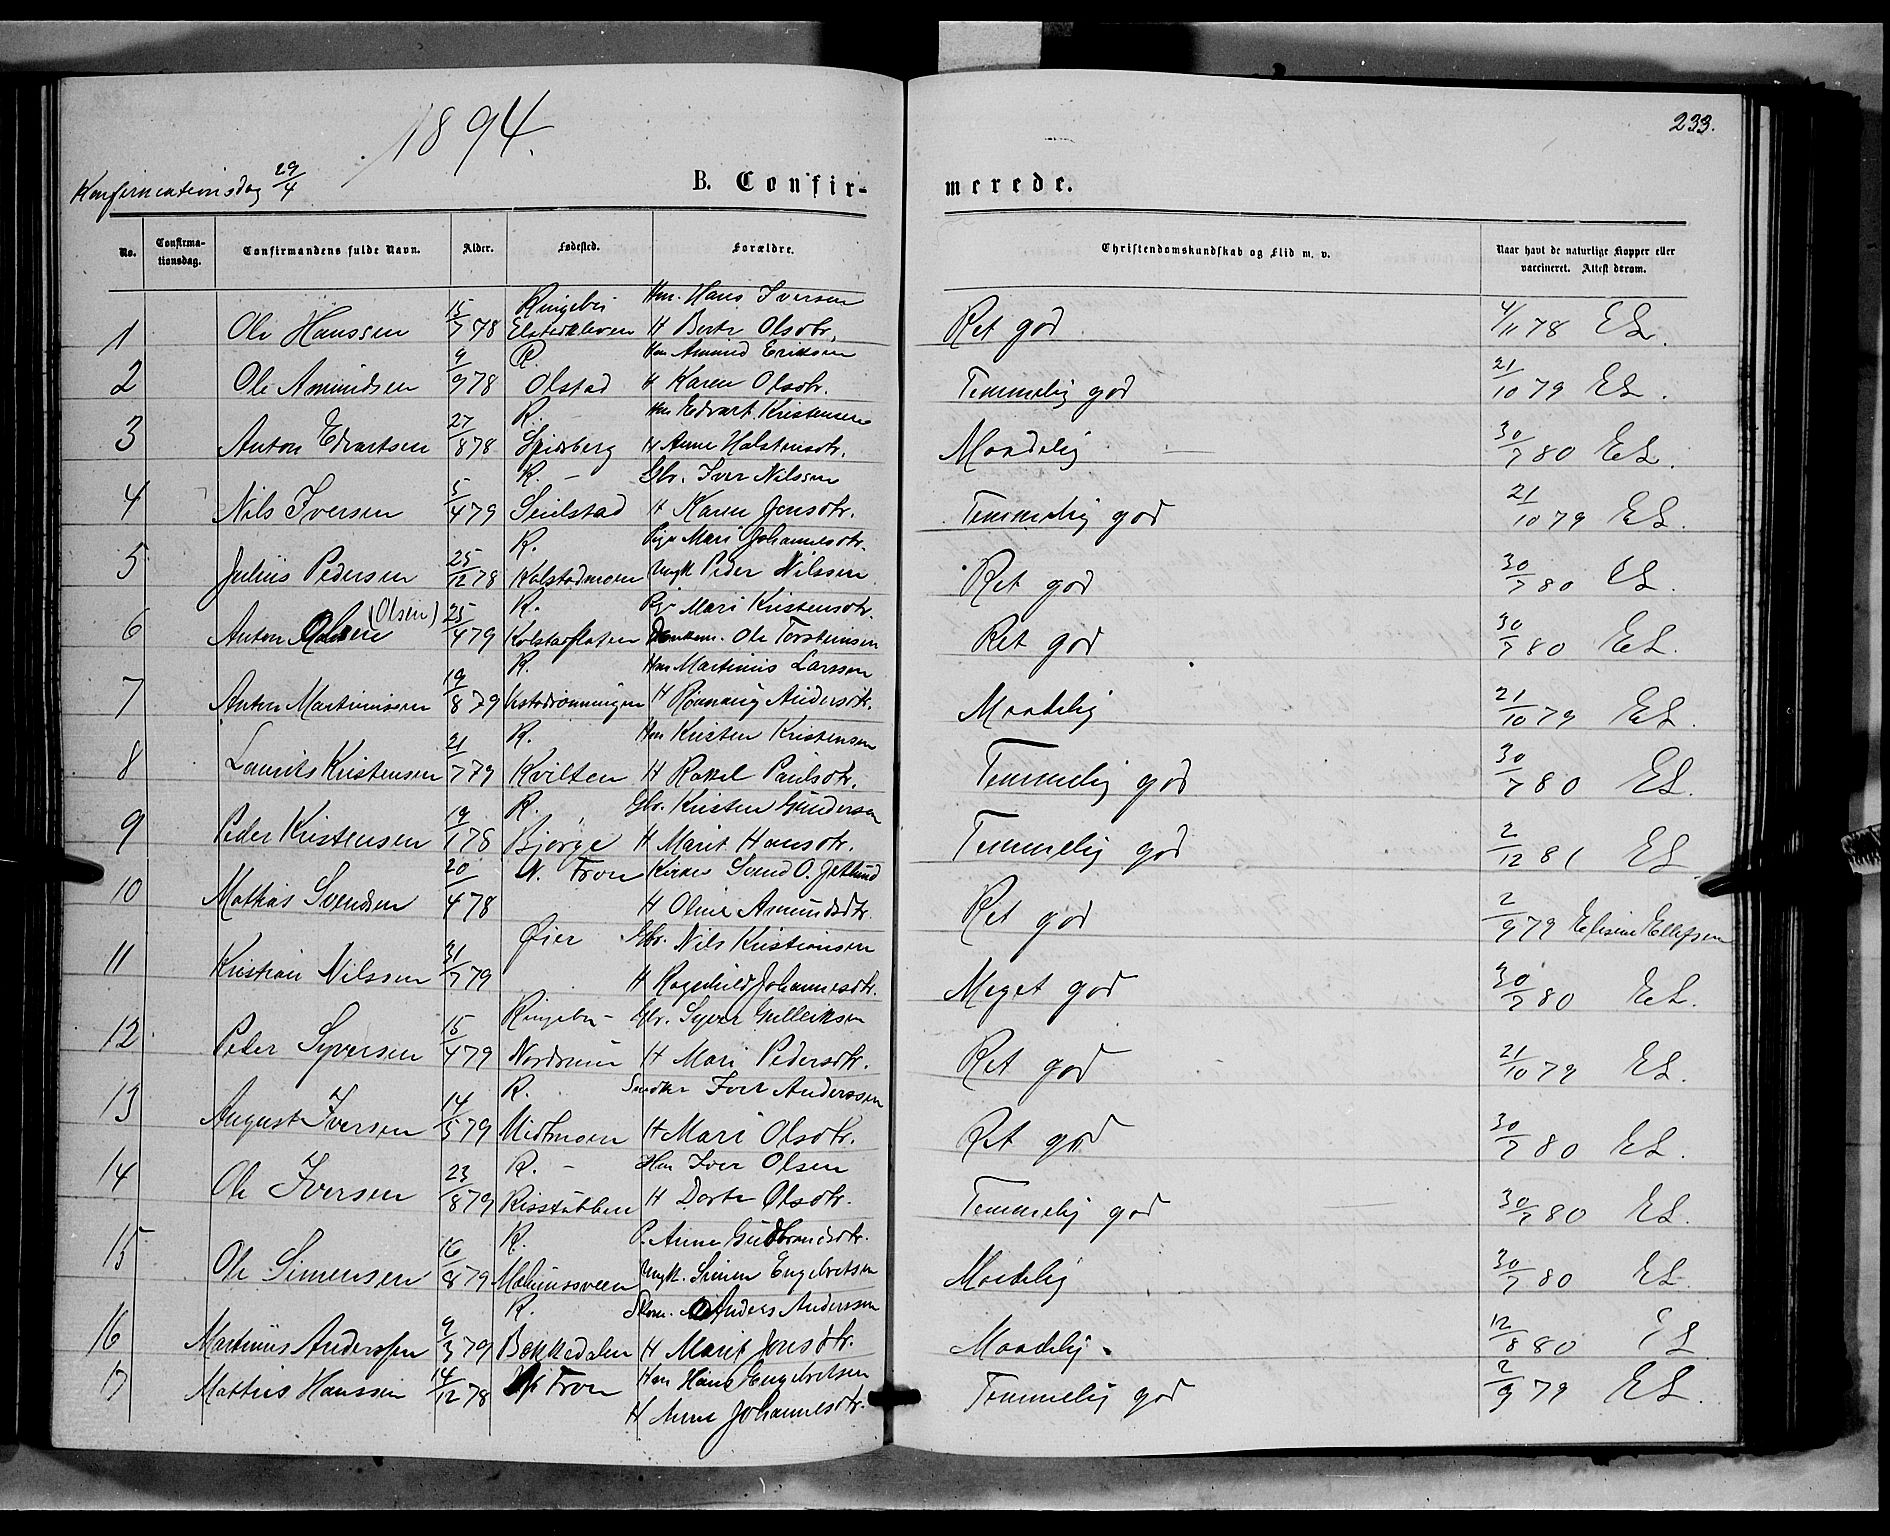 233.
1894.
Konfirmationsdag 29/4
B. Confir-merede.
No. Confirma-tionsdag. Confirmandens fulde Navn. Alder. Fødested. Forældre. Christendomskundskab og Flid m. v. Naar havt de naturlige Kopper eller vaccineret. Attest derom.
Ringebu Hm. Hans Iversen
1 Ole Hanssen 15/7 78 Elstadkleven H Berte Olsdtr. Ret god 4/11 78 EL.
R. Hm Amund Eriksen
2 Ole Amundsen 9/9 78 Olstad H Karen Olsdtr. Temmelig god 21/10 79 EL.
R. Hm Edvart Kristensen
3 Anton Edvartsen 27/8 78 H Anne Halstensdtr. Maadelig 30/7 80 EL.
R. - Gbr. Iver Nilssen
4 Nils Iversen 5/4 79 Seielstad H Karen Jensdtr. Temmelig god 21/10 79 EL.
R. Pige Mari Johannesdtr.
5 Julius Pedersen 25/12 78 Kolstadmoen Ungk Peder Nilssen Ret god 30/7 80 EL.
(Olsen) R. Pige Mari Kristensdtr.
6 Anton 25/4 79 Kolstadfloten Ole Torsteinsen Ret god 30/7 80 EL.
R. Hm Martinus Larssen
7 Anton Martinussen 19/8 79 H Rønnaug Andersdtr. Maadelig 21/10 79 EL.
R. Hm Kristen Kristensen
8 Laurits Kristensen 21/7 79 Kvilten H Rakel Paulsdtr. Temmelig god 30/7 80 EL.
R. Gbr. Kristen Gundersen
9 Peder Kristensen 19/1 78 Bjørge H Marit Hansdtr. Temmelig god 2/12 81 EL.
N. Fron Svend O. Jetlund
10 Mathias Svendsen 20/4 78 H Oline Amundsdtr. Ret god 2/9 79 Elisine Ellefsen
Øier Gbr. Nils Kristiansen
11 Kristian Nilssen 31/7 79 H Ragnhild Johannesdtr. Meget god 30/7 80 EL.
Ringebu - Gbr. Syver Gulleiksen
12 Peder Syversen 15/4 79 Nordrum H Mari Pedersdtr. Ret god 21/10 79 EL.
R. Iver Anderssen
13 August Iversen 14/5 79 Midtmoen H Mari Olsdtr. Ret god 30/7 80 EL.
R. - Hm Iver Olsen
14 Ole Iversen 23/8 79 Risstubben H Dorte Olsdtr. Temmelig god 30/7 80 EL.
R. P. Anne Gudbrandsdtr.
15 Ole Simensen 16/8 79 Ungk. Simen Engebretsen Maadelig 30/7 80 EL.
R. Anders Anderssen
16 Martinus Anderssen 9/3 79 Bakkedalen H Marit Jonsdtr. Maadelig. 12/8 80 EL
17 Mathis Hanssen 14/12 78 Fron Hm Hans Engebretsen Temmelig god 2/9 79 EL.
H Anne Johannesdtr.